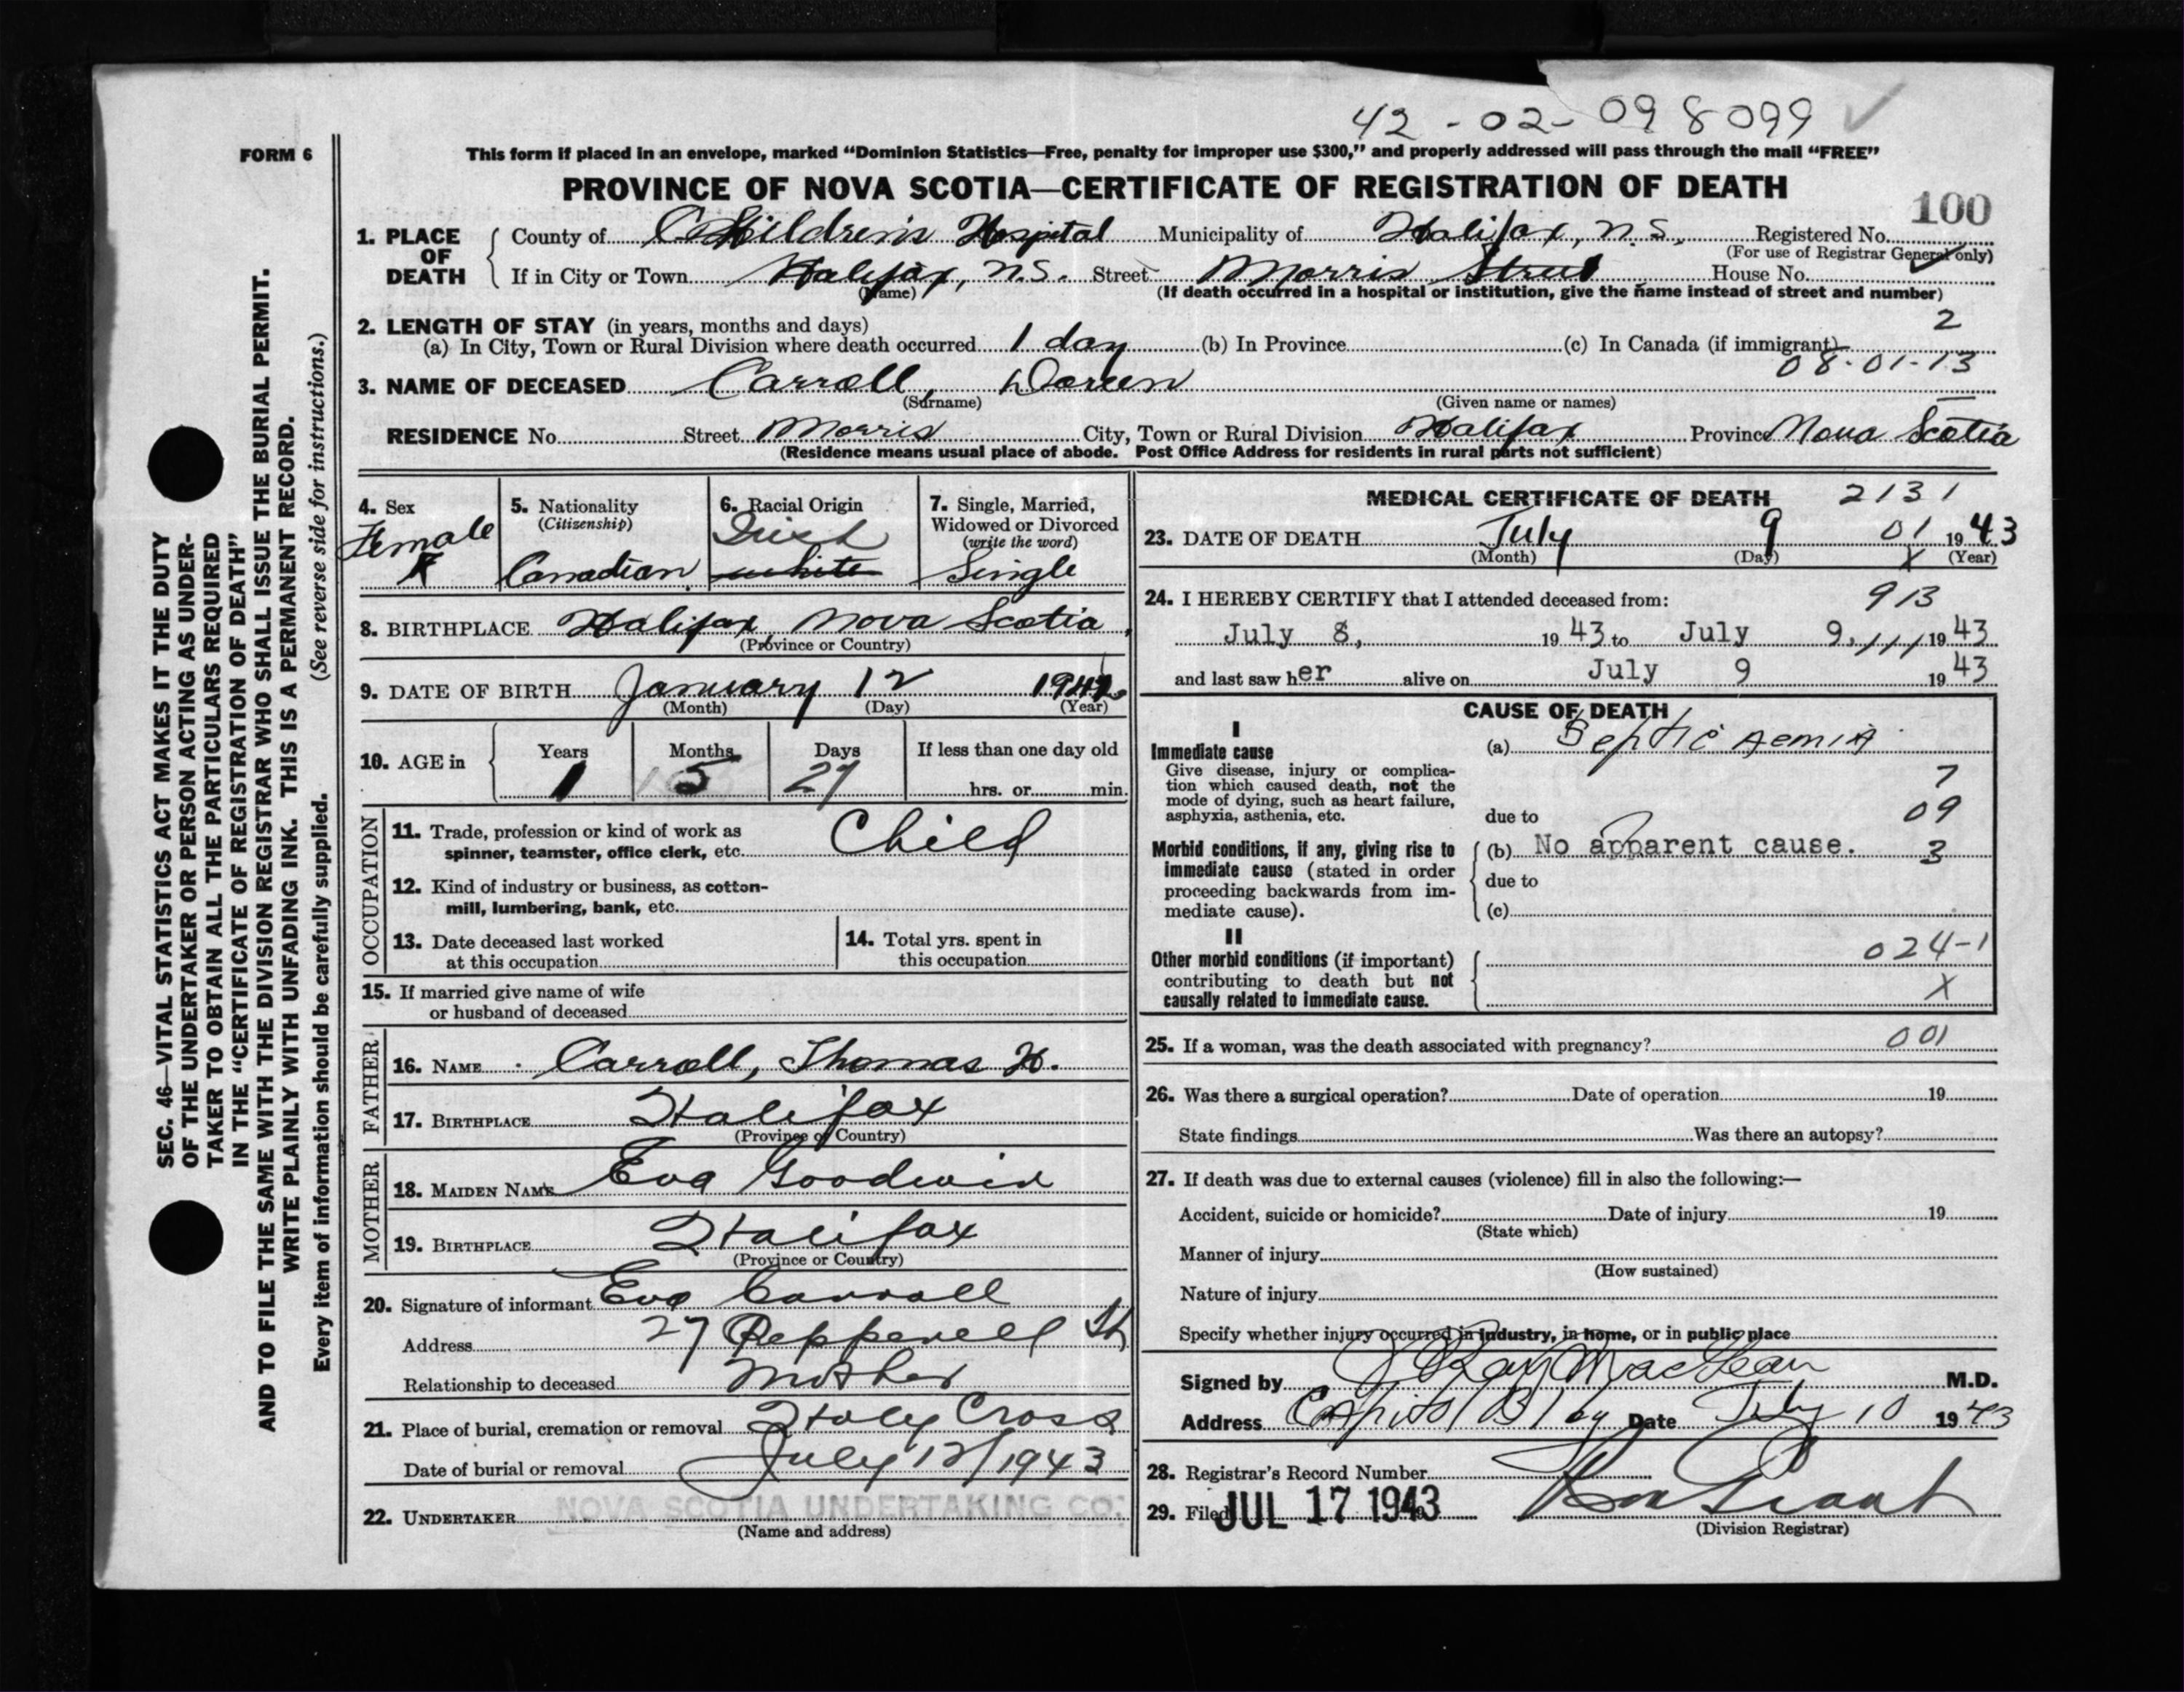 42-02-098099 ✓
FORM 6
This form if placed in an envelope, marked “Dominion Statistics—Free, penalty for improper use $300,” and properly addressed will pass through the mail “FREE”
PROVINCE OF NOVA SCOTIA—CERTIFICATE OF REGISTRATION OF DEATH
100
1. PLACE OF DEATH
County of Children's Hospital Municipality of Halifax, N.S. Registered No.
(For use of Registrar General only)
If in City or Town Halifax, N.S. Street Morris Street House No.
(Name) (If death occurred in a hospital or institution, give the name instead of street and number)
2. LENGTH OF STAY (in years, months and days) 2
(a) In City, Town or Rural Division where death occurred 1 day (b) In Province (c) In Canada (if immigrant)
08-01-13
3. NAME OF DECEASED Carroll, Doreen
(Surname) (Given name or names)
RESIDENCE No. Street Morris City, Town or Rural Division Halifax Province Nova Scotia
(Residence means usual place of abode. Post Office Address for residents in rural parts not sufficient)
4. Sex
Female
F
5. Nationality
(Citizenship)
Canadian
6. Racial Origin
Irish
white
7. Single, Married,
Widowed or Divorced
(write the word)
Single
8. BIRTHPLACE Halifax, Nova Scotia,
(Province or Country)
9. DATE OF BIRTH January 12 1942
(Month) (Day) (Year)
10. AGE in
Years Months Days If less than one day old
1 5 27 hrs. or min.
OCCUPATION
11. Trade, profession or kind of work as
spinner, teamster, office clerk, etc. Child
12. Kind of industry or business, as cotton-
mill, lumbering, bank, etc.
13. Date deceased last worked
at this occupation
14. Total yrs. spent in
this occupation
15. If married give name of wife
or husband of deceased
FATHER
16. NAME Carroll, Thomas H.
17. BIRTHPLACE Halifax
(Province or Country)
MOTHER
18. MAIDEN NAME Eva Goodwin
19. BIRTHPLACE Halifax
(Province or Country)
20. Signature of informant Eva Carroll
Address 27 Pepperell St
Relationship to deceased Mother
21. Place of burial, cremation or removal Holy Cross
Date of burial or removal July 12/1943
22. UNDERTAKER NOVA SCOTIA UNDERTAKING CO.
(Name and address)
MEDICAL CERTIFICATE OF DEATH 2131
23. DATE OF DEATH July 9 01 1943
(Month) (Day) X (Year)
24. I HEREBY CERTIFY that I attended deceased from: 913
July 8, 1943 to July 9, 111 1943
and last saw her alive on July 9 1943
CAUSE OF DEATH
I
Immediate cause
Give disease, injury or complica-
tion which caused death, not the
mode of dying, such as heart failure,
asphyxia, asthenia, etc.
(a) Septicaemia
7
due to 09
Morbid conditions, if any, giving rise to
immediate cause (stated in order
proceeding backwards from im-
mediate cause).
(b) No apparent cause. 3
due to
(c)
II
Other morbid conditions (if important)
contributing to death but not
causally related to immediate cause.
024-1
X
25. If a woman, was the death associated with pregnancy? 001
26. Was there a surgical operation? Date of operation 19
State findings Was there an autopsy?
27. If death was due to external causes (violence) fill in also the following:—
Accident, suicide or homicide? Date of injury 19
(State which)
Manner of injury
(How sustained)
Nature of injury
Specify whether injury occurred in industry, in home, or in public place
Signed by J Ray MacLean M.D.
Address Capitol Bldg Date July 10 1943
28. Registrar's Record Number
29. Filed JUL 17 1943
(Division Registrar)
SEC. 46—VITAL STATISTICS ACT MAKES IT THE DUTY
OF THE UNDERTAKER OR PERSON ACTING AS UNDER-
TAKER TO OBTAIN ALL THE PARTICULARS REQUIRED
IN THE “CERTIFICATE OF REGISTRATION OF DEATH”
AND TO FILE THE SAME WITH THE DIVISION REGISTRAR WHO SHALL ISSUE THE BURIAL PERMIT.
WRITE PLAINLY WITH UNFADING INK. THIS IS A PERMANENT RECORD.
Every item of information should be carefully supplied. (See reverse side for instructions.)